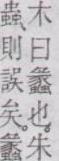 木曰蠡也。朱
蟲則誤矣。蠡